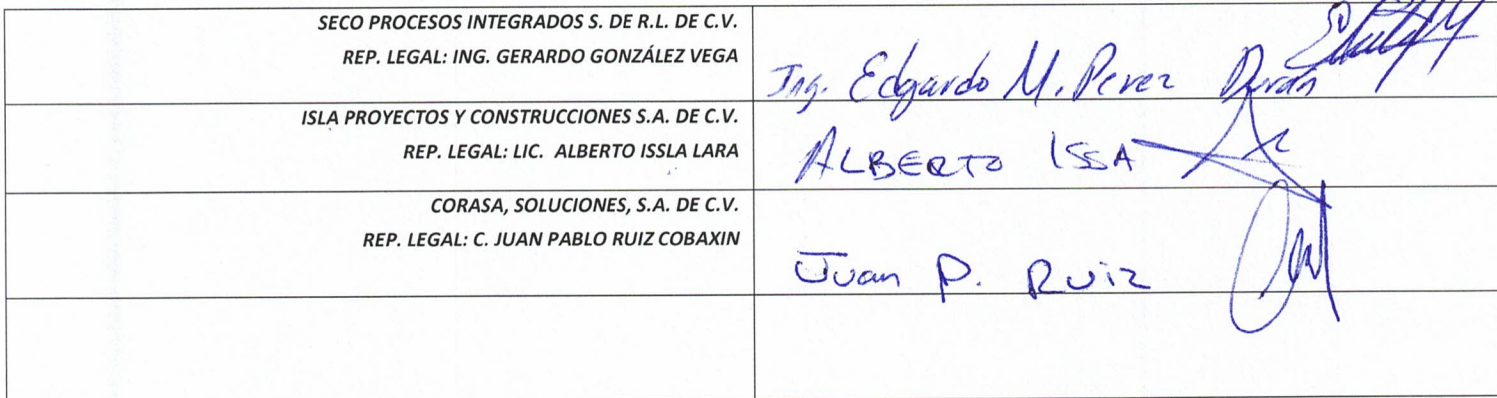 SECO PROCESOS INTEGRADOS S. DE R.L. DE C.V.
REP. LEGAL: ING. GERARDO GONZÁLEZ VEGA
Ing. Edgardo M. Perez Durán
ISLA PROYECTOS Y CONSTRUCCIONES S.A. DE C.V.
REP. LEGAL: LIC. ALBERTO ISSLA LARA
ALBERTO ISSA
CORASA, SOLUCIONES, S.A. DE C.V.
REP. LEGAL: C. JUAN PABLO RUIZ COBAXIN
Juan P. Ruiz